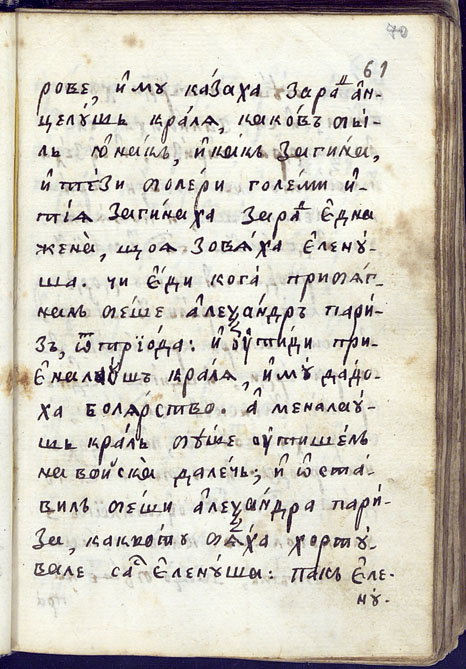 70
61
рове, и҆му ка́заха зара^д а҆н-
целу́шь кра́лѧ, каковъ бы́-
ль ю҆на́къ, и҆ ка́къ заги́на,
и҆ те́зи боле́ри голе́ми и҆-
тїѧ загина́ха зара^д є҆дна
жена̀, щоѧ зовѧ́ха є҆лену́-
ша. чи є҆́ди кога́ притѧг-
налъ бе́ше а҆леѯа́ндръ пари́-
зъ, ѿ прїо́да: и҆ ѹ҆ти́ди при-
є҆налау́шъ кра́лѧ, и҆му́ да́до-
ха болѧ́рство. а҆ меналау́-
шь кра́ль бѣ́ше ѹ҆тише́лъ
на войска̀ дале́чь; и҆ ѡ҆ста́-
вилъ бе́ши а҆леѯа́ндра пари́-
за, какво́ту бѧ́ха хорту́-
вале са^с є҆лену́ша: пакъ є҆ле-
ну́-